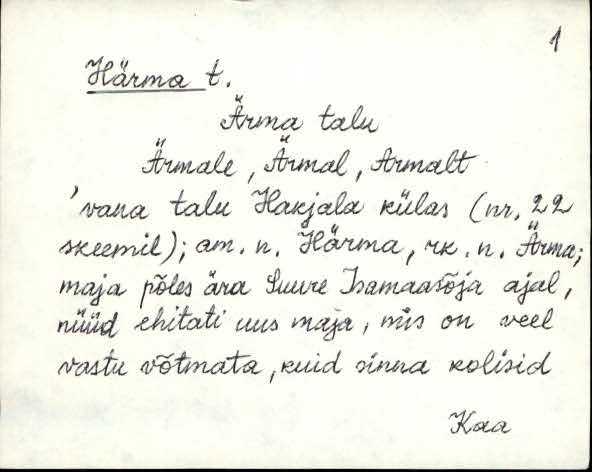 1
Härma t.
Ärma talu
Ärmale, Ärmal, Armalt
'vana talu Hakjala külas (nr. 22
skeemil); am. n. Härma, rk. n. Ärma;
maja põles ära Suure Isamaasõja ajal,
nüüd ehitati uus maja, mis on veel
vastu võtmata, kuid sinna kolisid
Kaa